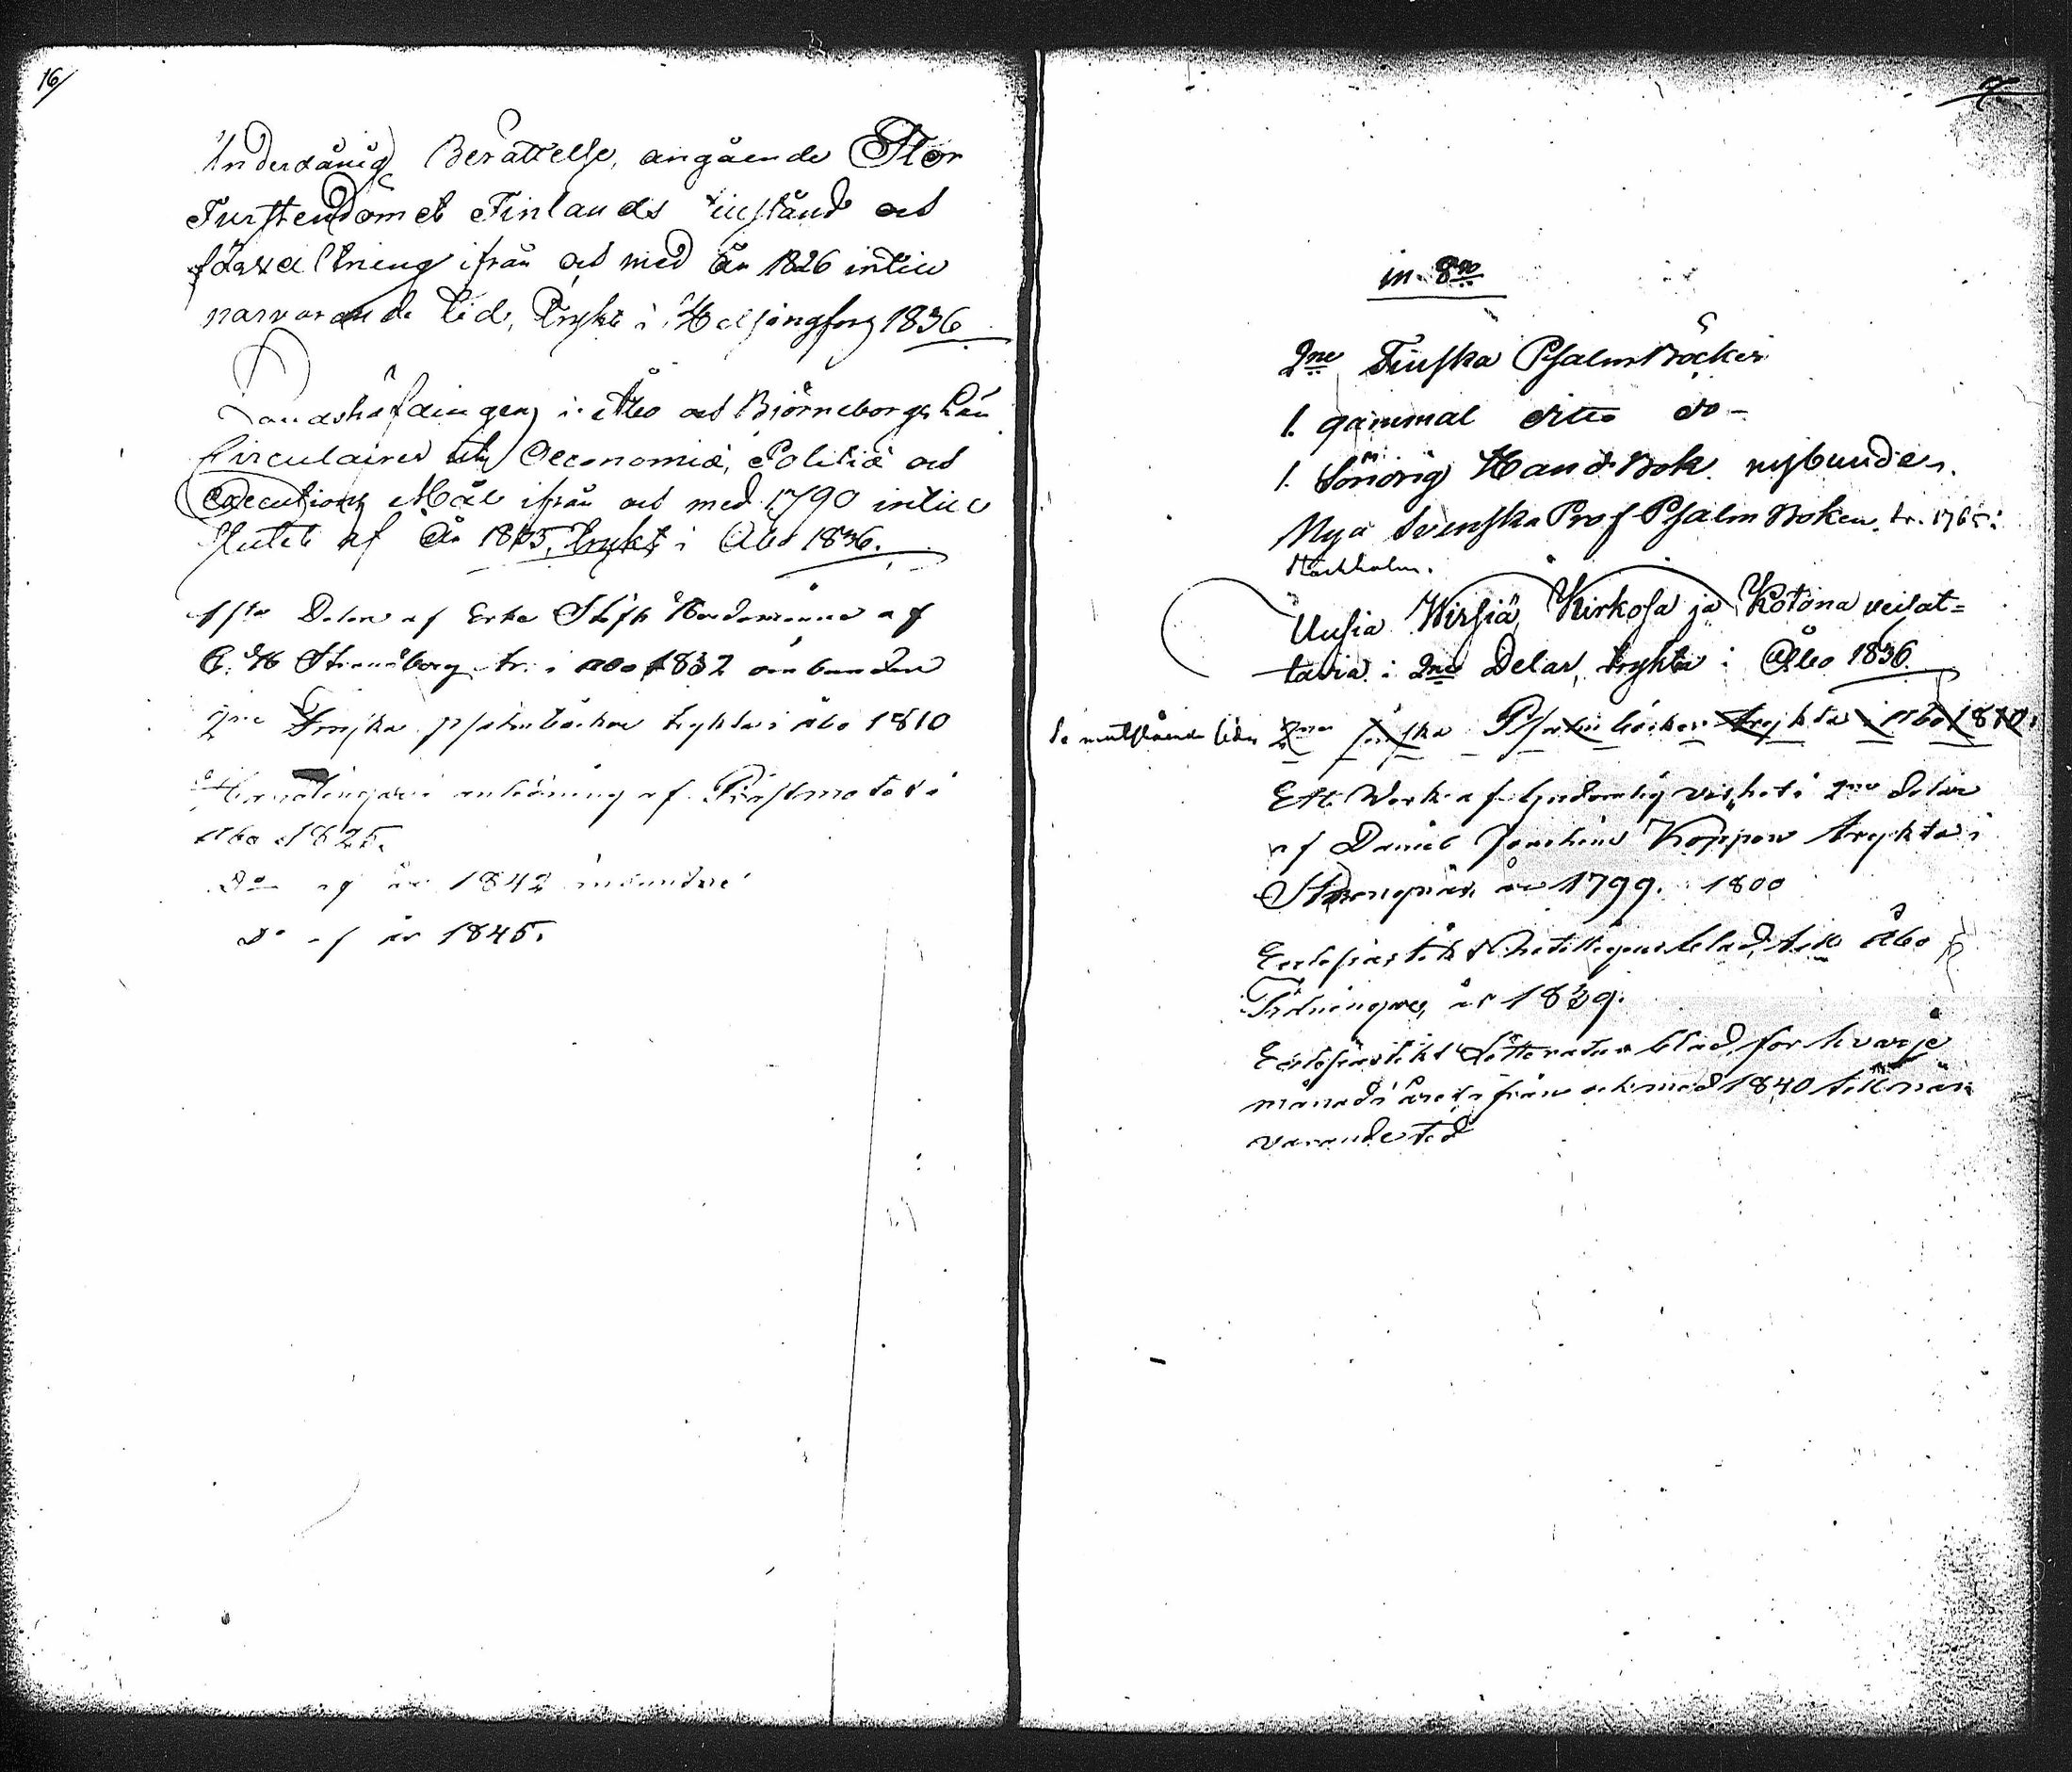 16/
Underdånig Berättelse, angående Stor
Furstendömet Finlands tillstånd och
förvaltning ifrån och med År 1826 intill
narvarande tid, Tryckt i Helsingfors 1836
Landshöfdingens i Åbo och Björneborgs Län
Circulairer uti Oeconomiæ, Politiæ och
Executions Mål ifrån och med 1790 intill
slutet af År 1835, tryckt i Åbo 1836.
1sta Delen af Erke Stift Herdaminne af
C. H Strandberg tr. i Åbo 1832 oinbunden
2ne Finska psalmböcker tryckta i Åbo 1810
Handlingar i anledning af Prestmötet i
Åbo 1825.
Do af år 1842
Do af år 1845.
in 8vo
2ne Finska PsalmBöcker
1. gammal ditto do
1. HandBok nybunden.
Nya Svenska Prof PsalmBoken. tr. 1765 i
Stockholm.
Uusia Wirsiä Kirkosa ja Kotona veisat=
tavia i 2ne Delar, tryckta i Åbo 1836.
Se motstående sida 2ne finska Psalmböcker tryckta i Åbo 1810.
Ett Werk af Gudomlig vishet i 2ne delar
af Daniel Joachim Köppen tryckta i
Strengnäs år 1799. 1800
Ecclesiastikt Intelligens blad, till Åbo
Tidningar, år 1839.
Ecclesiastikt Litteratur blad för hvarje
månad i året ifrån och med 1840 till när
varande tid